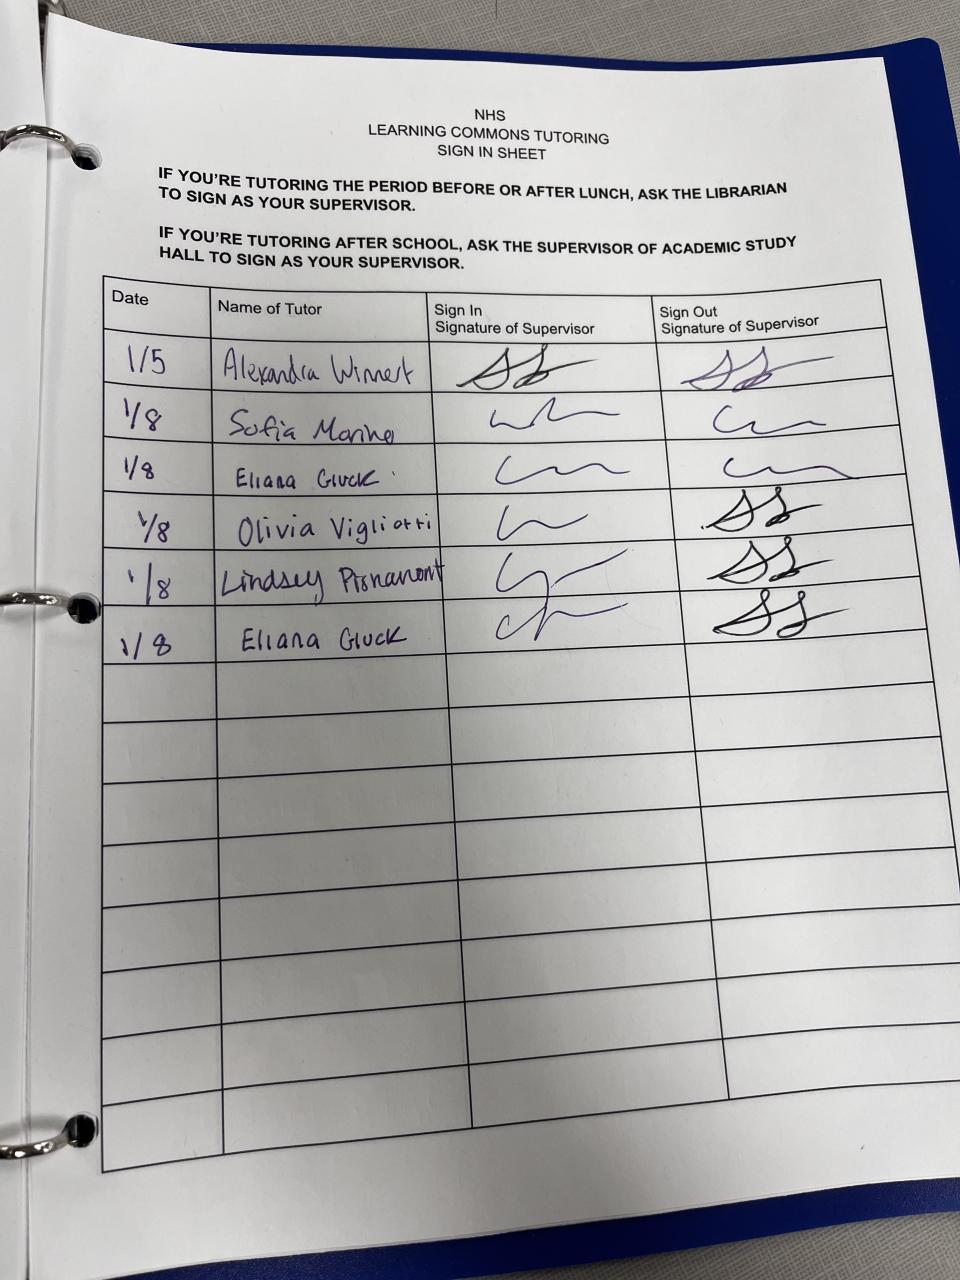 NHS
LEARNING COMMONS TUTORING
SIGN IN SHEET
IF YOU'RE TUTORING THE PERIOD BEFORE OR AFTER LUNCH, ASK THE LIBRARIAN
TO SIGN AS YOUR SUPERVISOR.
IF YOU'RE TUTORING AFTER SCHOOL, ASK THE SUPERVISOR OF ACADEMIC STUDY
HALL TO SIGN AS YOUR SUPERVISOR.
Date Name of Tutor Sign In Sign Out
Signature of Supervisor Signature of Supervisor
1/5 Alexandra
1/8 Sofia
1/8 Eliana Gluck
1/8 Olivia Vigliotti
1/8 Lindsey
1/8 Eliana Gluck